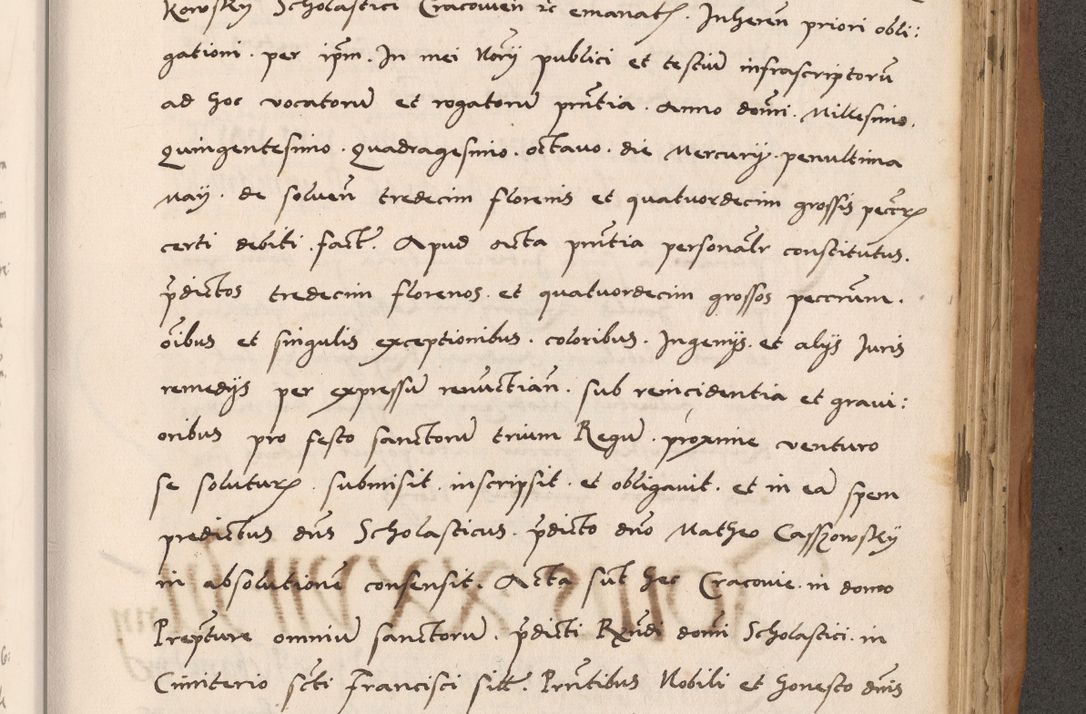 kowsky Scholastici Cracovien etc emanatis. Inheren priori obli:
gationi. per ipm. In mei Nory publici et testiū infrascriptorū
ad hoc vocatorū et rogatorū prntia. Anno domi. Millesimo.
Quingentesimo. Quadragesimo. octavo. die Mercurij. penultima
Maij. de solven tredecim florenis et quatuordecim grossis peccr
certi debiti. fact. Apud acta prntia personalr constitutus.
pdictos tredecim florenos. et quatuordecim grossos peccrum.
oibus et singulis exceptionibus. coloribus. Ingenijs. et alijs Iuris
remedijs per expressū renūctian. sub reincidentia et gravi:
oribus pro festo sanctorū trium Regū. proxime venturo
se soluturū. submisit. inscripsit. et obligavit. et in eā spem
predictus dns Scholasticus. pdicto dno Matheo Casszowsky
in absolutionē consensit. Acta sūt hec Cracovie. in domo
Prepture omniū sanctorū. pdicti Rxndi domi Scholastici. in
Cimiterio scti Francisci sitt. Prntibus Nobili et honesto dnis